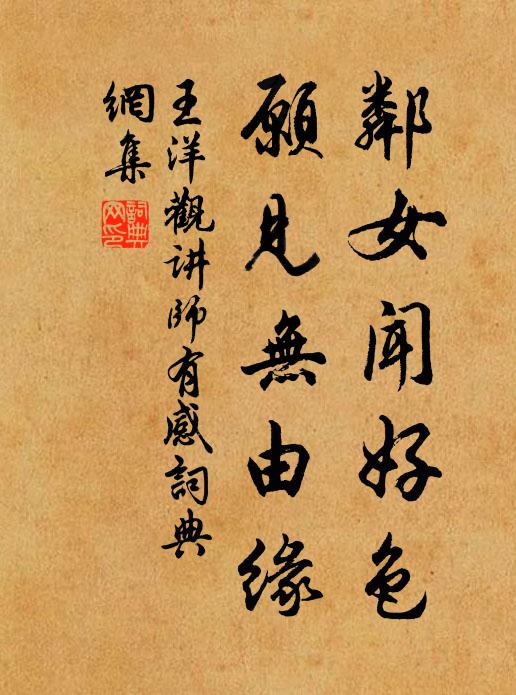 鄰女闻好色
願見無由緣
王洋觀讲師有感詞典
網集
詞典
网印